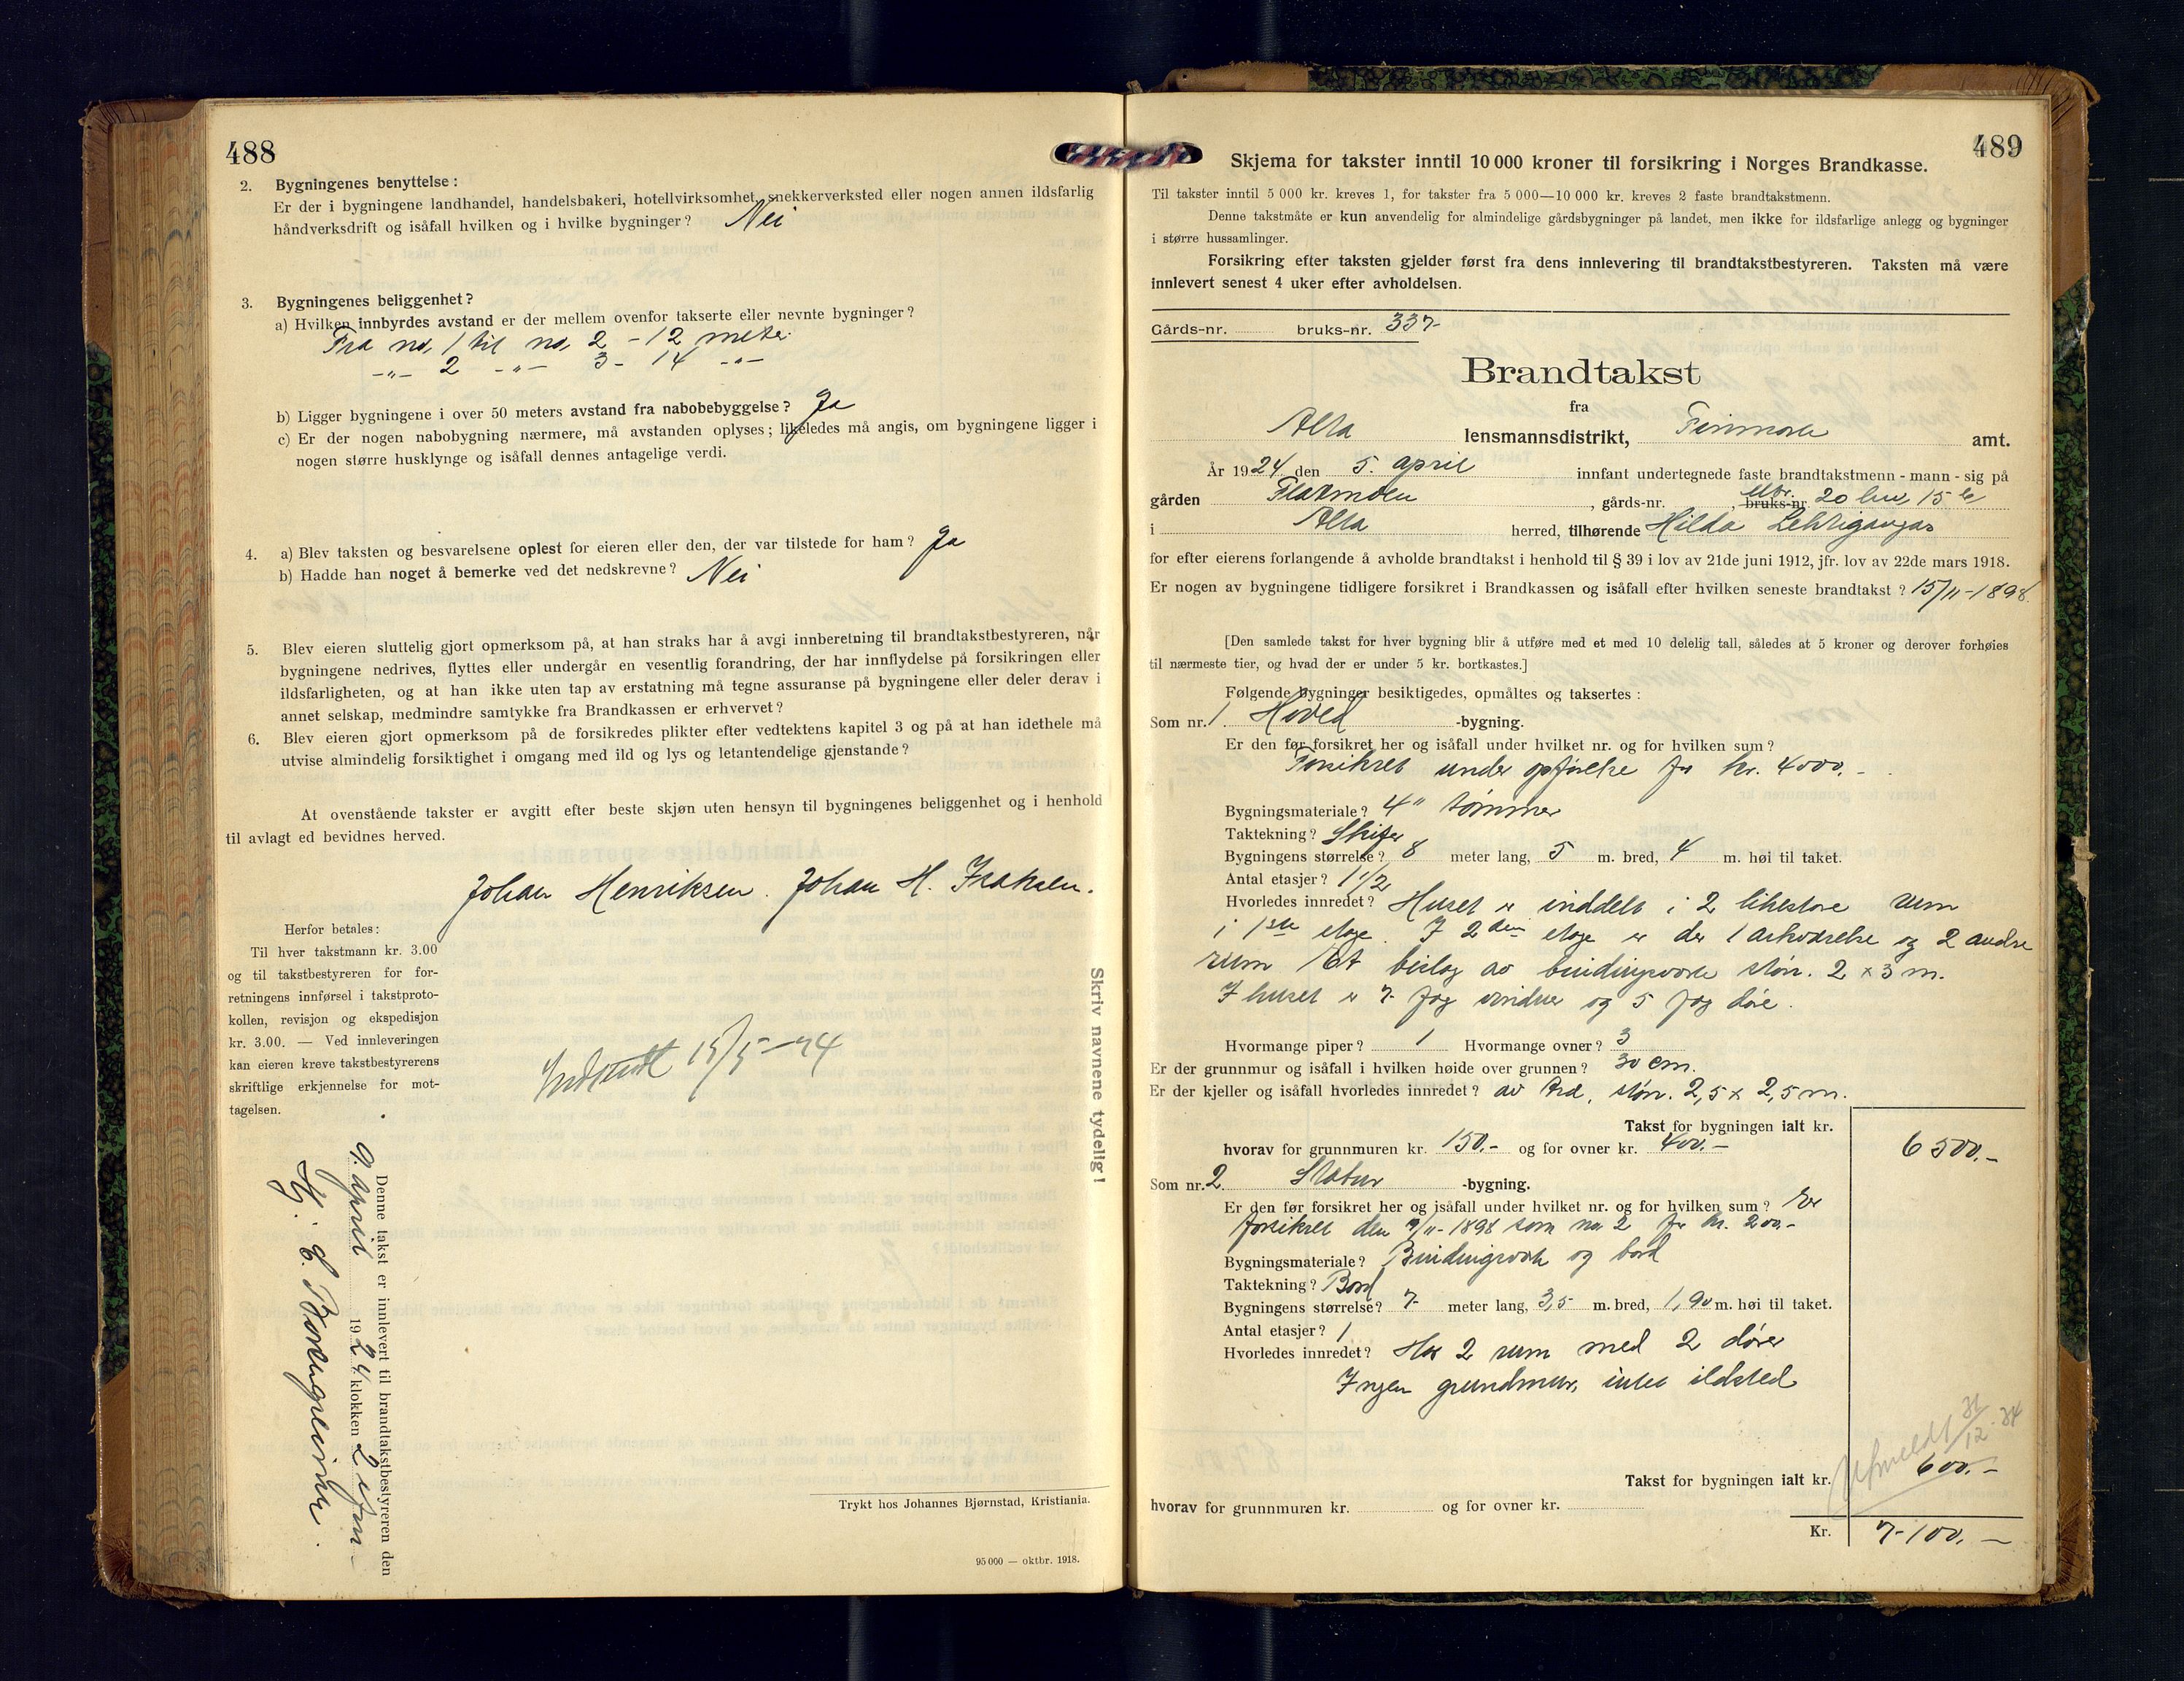 488
2. Bygningenes benyttelse:
Er der i bygningene landhandel, handelsbakeri, hotellvirksomhet, snekkerverksted eller nogen annen ildsfarlig
håndverksdrift og isåfall hvilken og i hvilke bygninger? Nei
3. Bygningenes beliggenhet?
a) Hvilken innbyrdes avstand er der mellem ovenfor takserte eller nevnte bygninger?
Fra no, 1 til no, 2 - 12 meter
-"- 2 -"- 3 - 14 -"-
b) Ligger bygningene i over 50 meters avstand fra nabobebyggelse? Ja
c) Er der nogen nabobygning nærmere, må avstanden oplyses; likeledes må angis, om bygningene ligger i
nogen større husklynge og isåfall dennes antagelige verdi.
4. a) Blev taksten og besvarelsene oplest for eieren eller den, der var tilstede for ham? Ja
b) Hadde han noget å bemerke ved det nedskrevne? Nei
5. Blev eieren sluttelig gjort opmerksom på, at han straks har å avgi innberetning til brandtakstbestyreren, når
bygningene nedrives, flyttes eller undergår en vesentlig forandring, der har innflydelse på forsikringen eller
ildsfarligheten, og at han ikke uten tap av erstatning må tegne assuranse på bygningene eller deler derav i
annet selskap, medmindre samtykke fra Brandkassen er erhvervet?
6. Blev eieren gjort opmerksom på de forsikredes plikter efter vedtektens kapitel 3 og på at han idethele må
utvise almindelig forsiktighet i omgang med ild og lys og letantendelige gjenstande?
At ovenstående takster er avgitt efter beste skjøn uten hensyn til bygningenes beliggenhet og i henhold
til avlagt ed bevidnes herved.
Johan Henriksen. Johan H. Isaksen.
Herfor betales:
Til hver takstmann kr. 3.00
og til takstbestyreren for for-
retningens innførsel i takstproto-
kollen, revisjon og ekspedisjon
kr. 3.00. — Ved innleveringen
kan eieren kreve takstbestyrerens
skriftlige erkjennelse for mot-
tagelsen.
15/5-24
Skriv navnene tydelig!
Denne takst er innlevert til brandtakstbestyreren den
9. april 1924 klokken 2
Trykt hos Johannes Bjørnstad, Kristiania.
95 000 — oktbr. 1918.
489
Skjema for takster inntil 10 000 kroner til forsikring i Norges Brandkasse.
Til takster inntil 5 000 kr. kreves 1, for takster fra 5 000—10 000 kr. kreves 2 faste brandtakstmenn.
Denne takstmåte er kun anvendelig for almindelige gårdsbygninger på landet, men ikke for ildsfarlige anlegg og bygninger
i større hussamlinger.
Forsikring efter taksten gjelder først fra dens innlevering til brandtakstbestyreren. Taksten må være
innlevert senest 4 uker efter avholdelsen.
Gårds-nr. bruks-nr. 337
Brandtakst
fra
Alta lensmannsdistrikt, Finmark amt.
År 1924 den 5. april innfant undertegnede faste brandtakstmenn - mann - sig på
gården Flatmoen, gårds-nr. , bruks-nr. 20 15
i Alta herred, tilhørende Hilda Lehtigangas
for efter eierens forlangende å avholde brandtakst i henhold til § 39 i lov av 21de juni 1912, jfr. lov av 22de mars 1918.
Er nogen av bygningene tidligere forsikret i Brandkassen og isåfall efter hvilken seneste brandtakst? 15/11-1898.
[Den samlede takst for hver bygning blir å utføre med et med 10 delelig tall, således at 5 kroner og derover forhøies
til nærmeste tier, og hvad der er under 5 kr. bortkastes.]
Følgende bygninger besiktigedes, opmåltes og taksertes:
Som nr. 1 Hoved -bygning.
Er den før forsikret her og isåfall under hvilket nr. og for hvilken sum?
Forsikret under opførelse for kr. 4000.-
Bygningsmateriale? 4" tømmer
Taktekning? Skifer
Bygningens størrelse? 8 meter lang, 5 m. bred, 4 m. høi til taket.
Antal etasjer? 1 1/2
Hvorledes innredet? Huset er inddelt i 2 likestore rum
i 1ste etage. I 2den etage er der 1 arkværelse og 2 andre
rum Et bislag av bindingsverk størr. 2 x 3 m.
I huset er 7 fag vinduer og 5 fag døre.
Hvormange piper? 1 Hvormange ovner? 3
Er der grunnmur og isåfall i hvilken høide over grunnen? 30 cm.
Er der kjeller og isåfall hvorledes innredet? av størr. 2,5 x 2,5 m.
Takst for bygningen ialt kr. 6500.-
hvorav for grunnmuren kr. 150.- og for ovner kr. 400.-
Som nr. 2 Stabur -bygning.
Er den før forsikret her og isåfall under hvilket nr. og for hvilken sum? Er
forsikret den 1898 som no 2 for kr. 200-
Bygningsmateriale? Bindingsverk og bord
Taktekning? Bord
Bygningens størrelse? 7 meter lang, 3,5 m. bred, 1,90 m. høi til taket.
Antal etasjer? 1
Hvorledes innredet? Har 2 rum med 2 dører
Ingen grundmur, intet ildsted
Takst for bygningen ialt kr. 600.-
hvorav for grunnmuren kr. og for ovner kr.
Kr. 7100.-